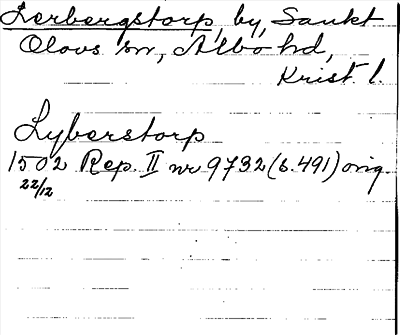 Lerbergstorp, by, Sankt
Olovs sn, Albo hd,
Krist. l.
Lyberstorp
1502 Rep. II nr 9732 (s. 491) orig.
22/12